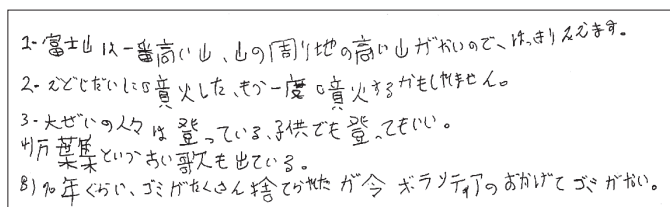 1-富士山は一番高い山、山の周り地の高い山がないので、はっきり見えます。
2-えどじだいに噴火した、もう一度噴火するかもしれません。
3-大ぜいの人々は登っている、子供でも登ってもいい。
4)万葉集という古い歌も出ている。
5)90年ぐらい、ゴミがたくさん捨てられたが今ボランティアのおかげでゴミがない。